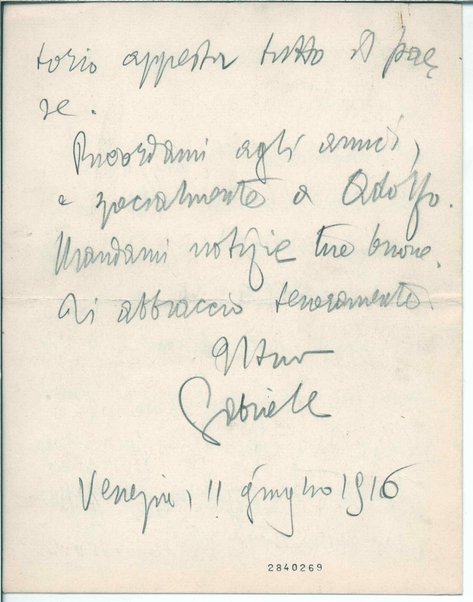 torio appesta tutto il pae
se.
Ricordami agli amici,
e specialmente a Adolfo.
Mandami notizie tue buone.
Ti abbraccio teneramente.
Il tuo
Gabriele
Venezia, 11 giugno 1916
2840269